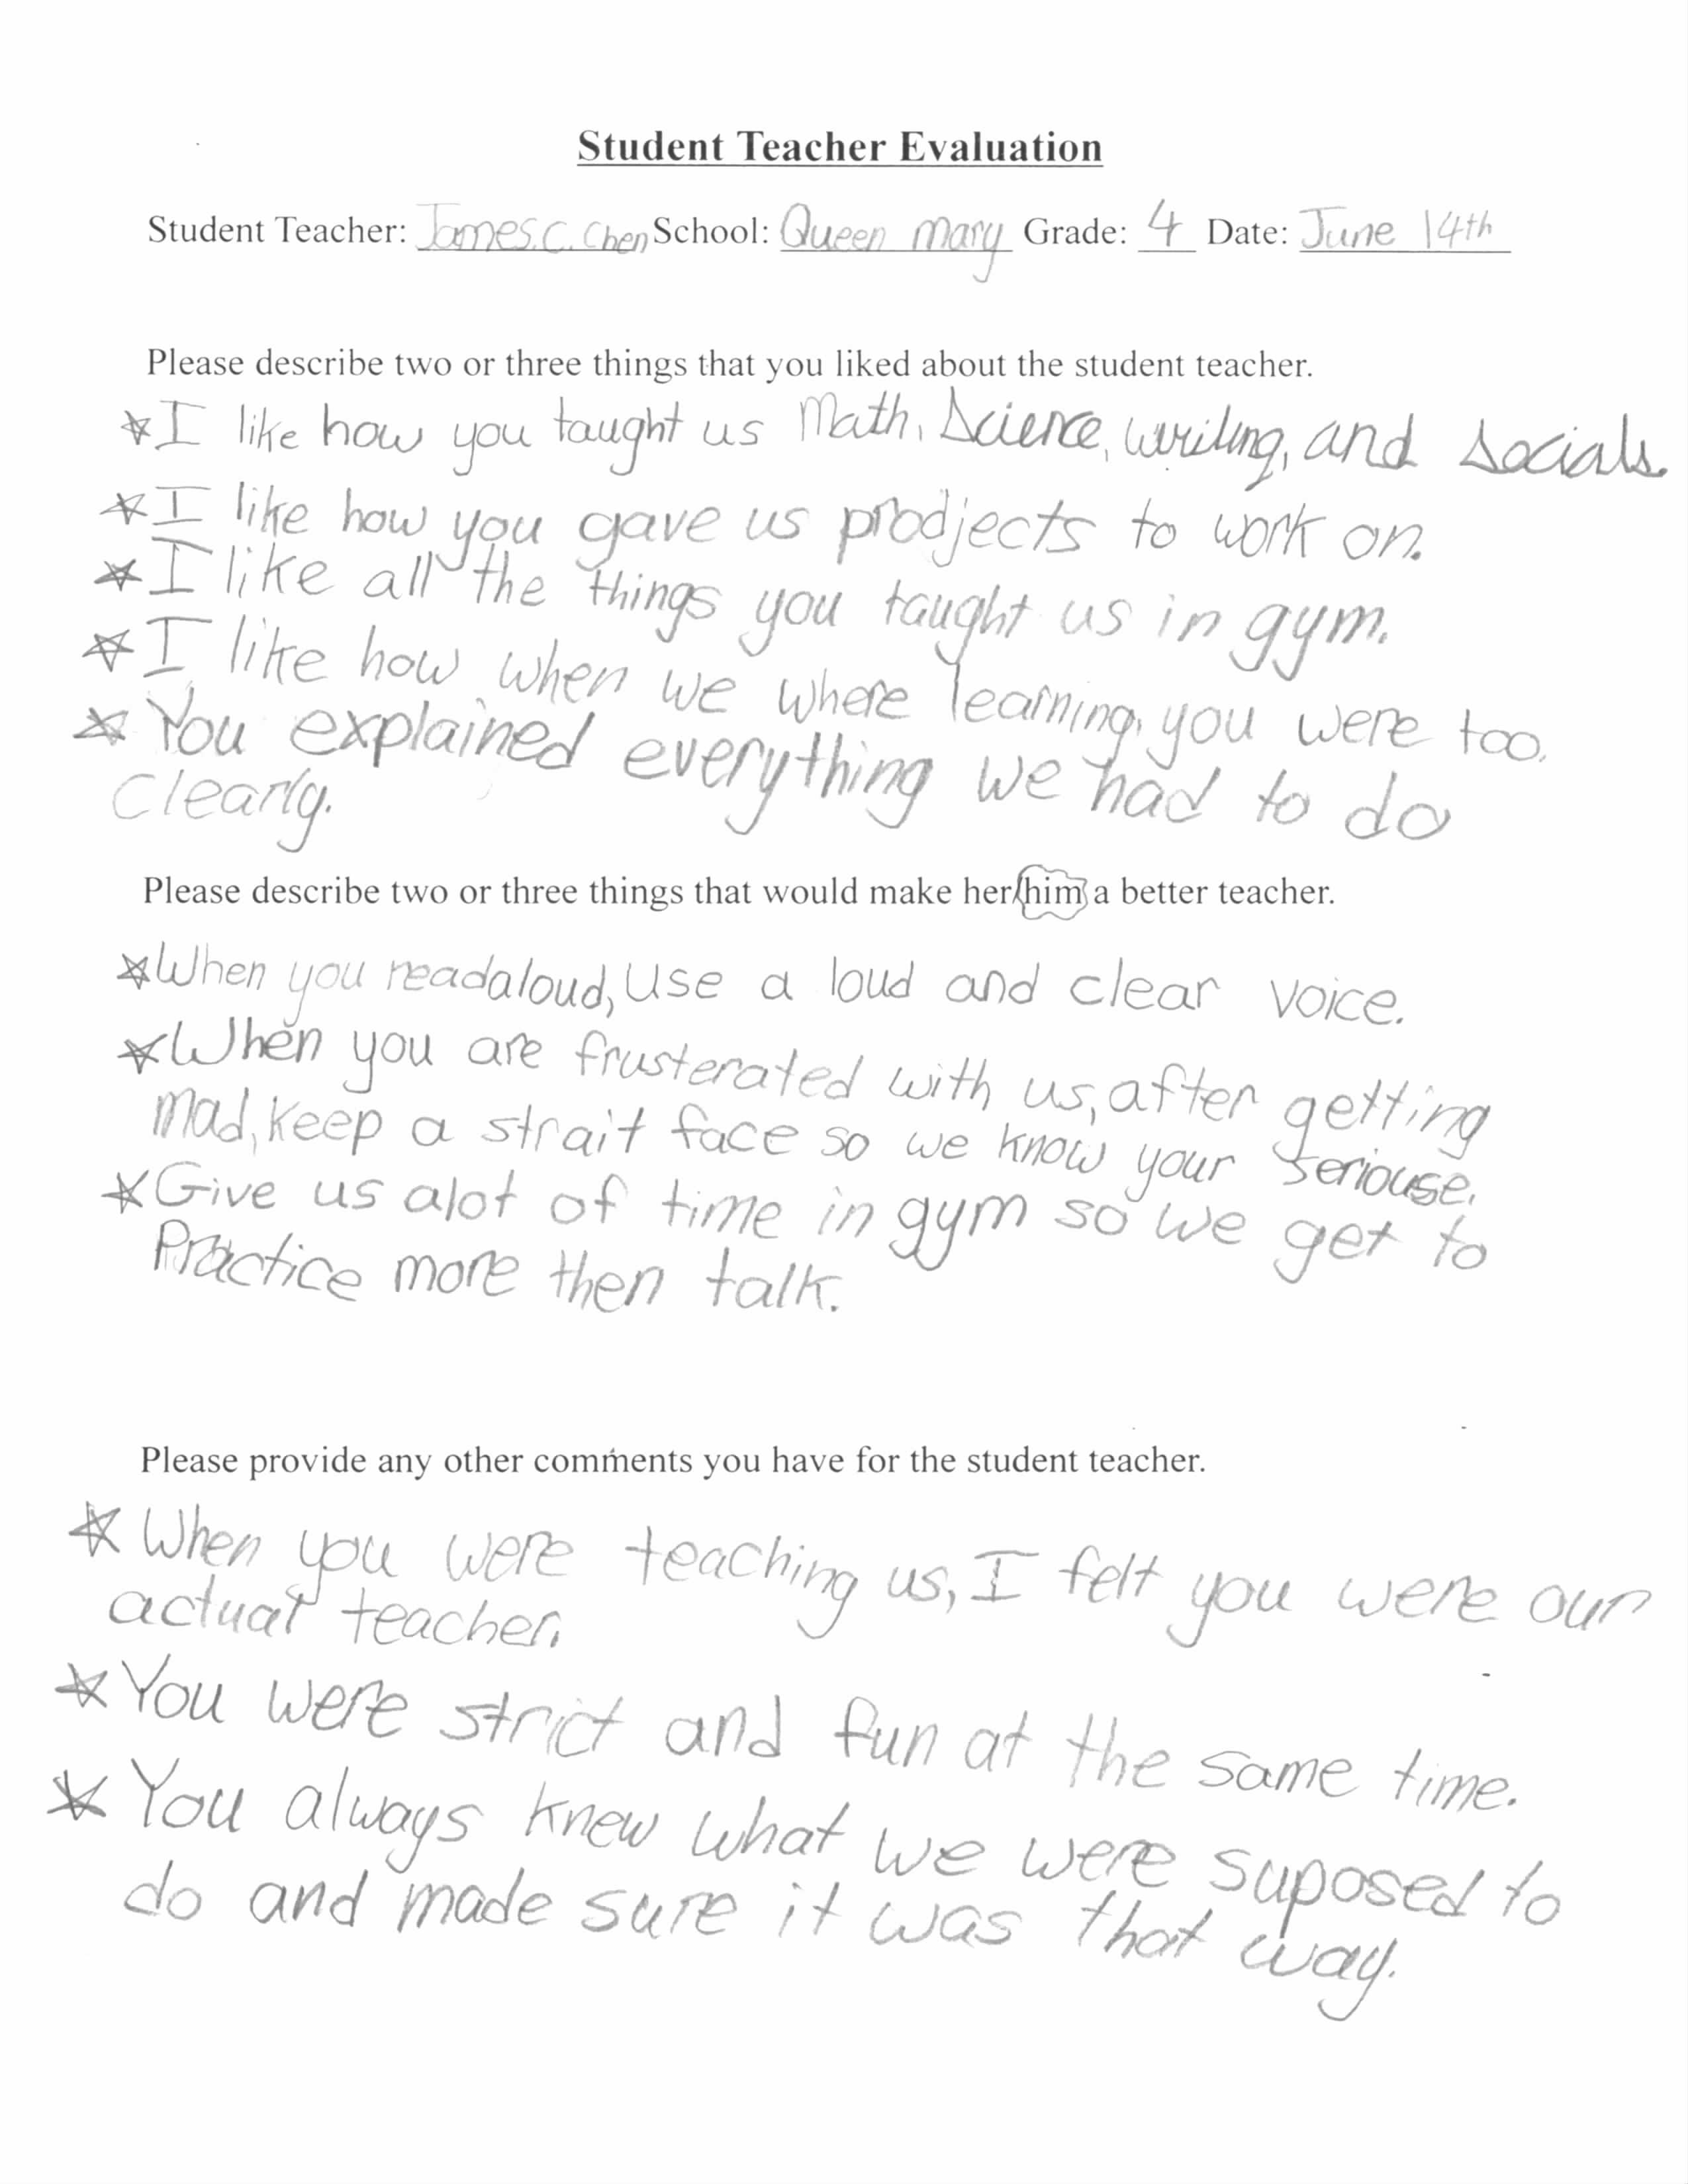 Student Teacher Evaluation
Student Teacher: James.C. Chen School: Queen Mary Grade: 4 Date: June 14th
Please describe two or three things that you liked about the student teacher.
☆I like how you taught us Math, Science, writing, and socials.
☆I like how you gave us prodjects to work on.
☆I like all the things you taught us in gym.
☆I like how when we where learning, you were too.
☆You explained everything we had to do
clearly.
Please describe two or three things that would make her/him a better teacher.
☆When you readaloud, Use a loud and clear voice.
☆When you are frusterated with us, after getting
Mad, keep a strait face so we know your seriouse.
☆Give us alot of time in gym so we get to
Practice more then talk.
Please provide any other comments you have for the student teacher.
☆When you were teaching us, I felt you were our
actual teacher.
☆You were strict and fun at the same time.
☆You always knew what we were suposed to
do and made sure it was that way.